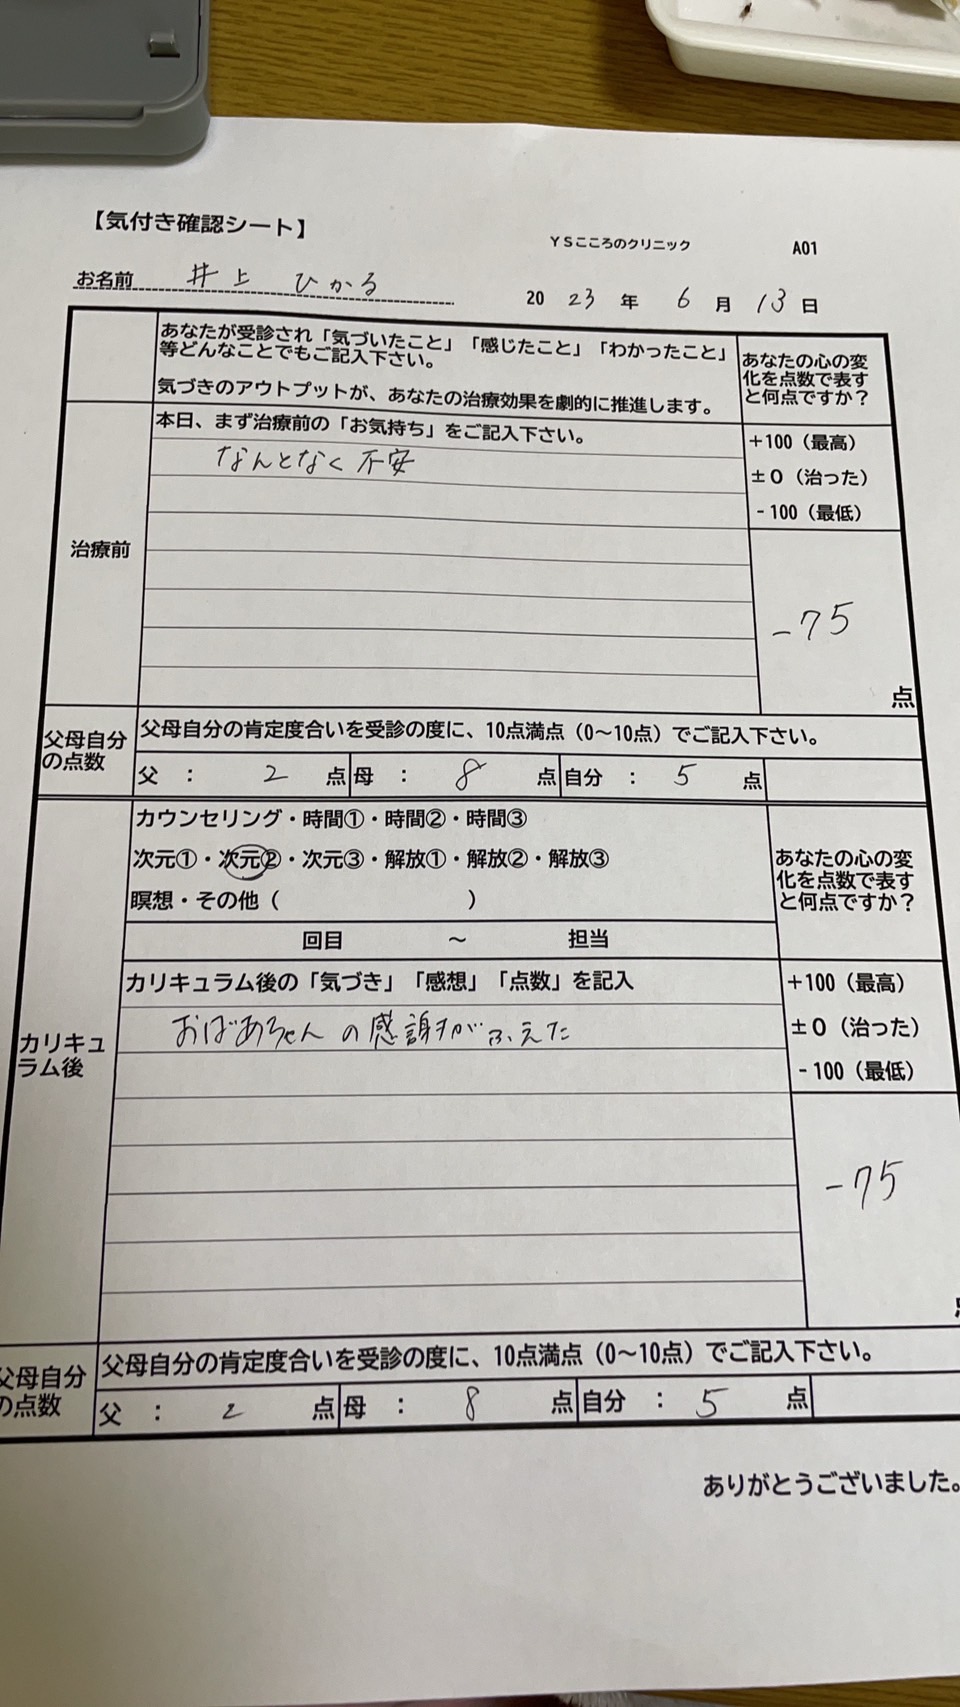 【気付き確認シート】
YSこころのクリニック A01
お名前 井上 ひかる 20 23 年 6 月 13 日
あなたが受診され「気づいたこと」「感じたこと」「わかったこと」
等どんなことでもご記入下さい。
気づきのアウトプットが、あなたの治療効果を劇的に推進します。
あなたの心の変
化を点数で表す
と何点ですか？
治療前
本日、まず治療前の「お気持ち」をご記入下さい。
なんとなく不安
+100（最高）
±0（治った）
-100（最低）
-75
点
父母自分
の点数
父母自分の肯定度合いを受診の度に、10点満点（0～10点）でご記入下さい。
父 ： 2 点 母 ： 8 点 自分 ： 5 点
カリキュ
ラム後
カウンセリング・時間①・時間②・時間③
次元①・次元②・次元③・解放①・解放②・解放③
瞑想・その他（ ）
回目 ～ 担当
あなたの心の変
化を点数で表す
と何点ですか？
カリキュラム後の「気づき」「感想」「点数」を記入
おばあちゃんの感謝がふえた
+100（最高）
±0（治った）
-100（最低）
-75
点
父母自分
の点数
父母自分の肯定度合いを受診の度に、10点満点（0～10点）でご記入下さい。
父 ： 2 点 母 ： 8 点 自分 ： 5 点
ありがとうございました。